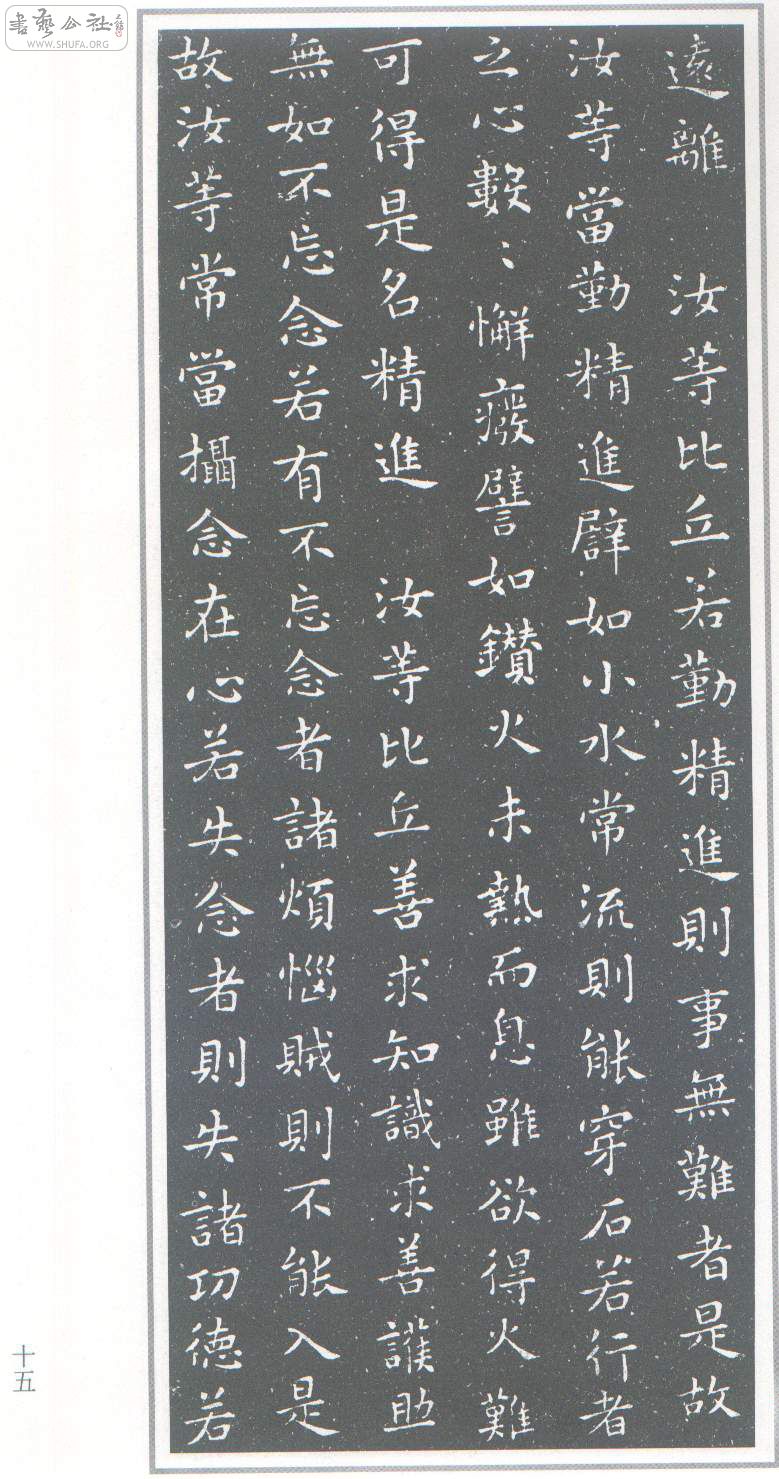 書藝公社
WWW.SHUFA.ORG
遠離　汝等比丘若勤精進則事無難者是故
汝等當勤精進譬如小水常流則能穿石若行者
之心數〻懈癈譬如鑚火未熱而息雖欲得火難
可得是名精進　汝等比丘善求知識求善護助
無如不忘念若有不忘念者諸煩惱賊則不能入是
故汝等常當攝念在心若失念者則失諸功德若
十五